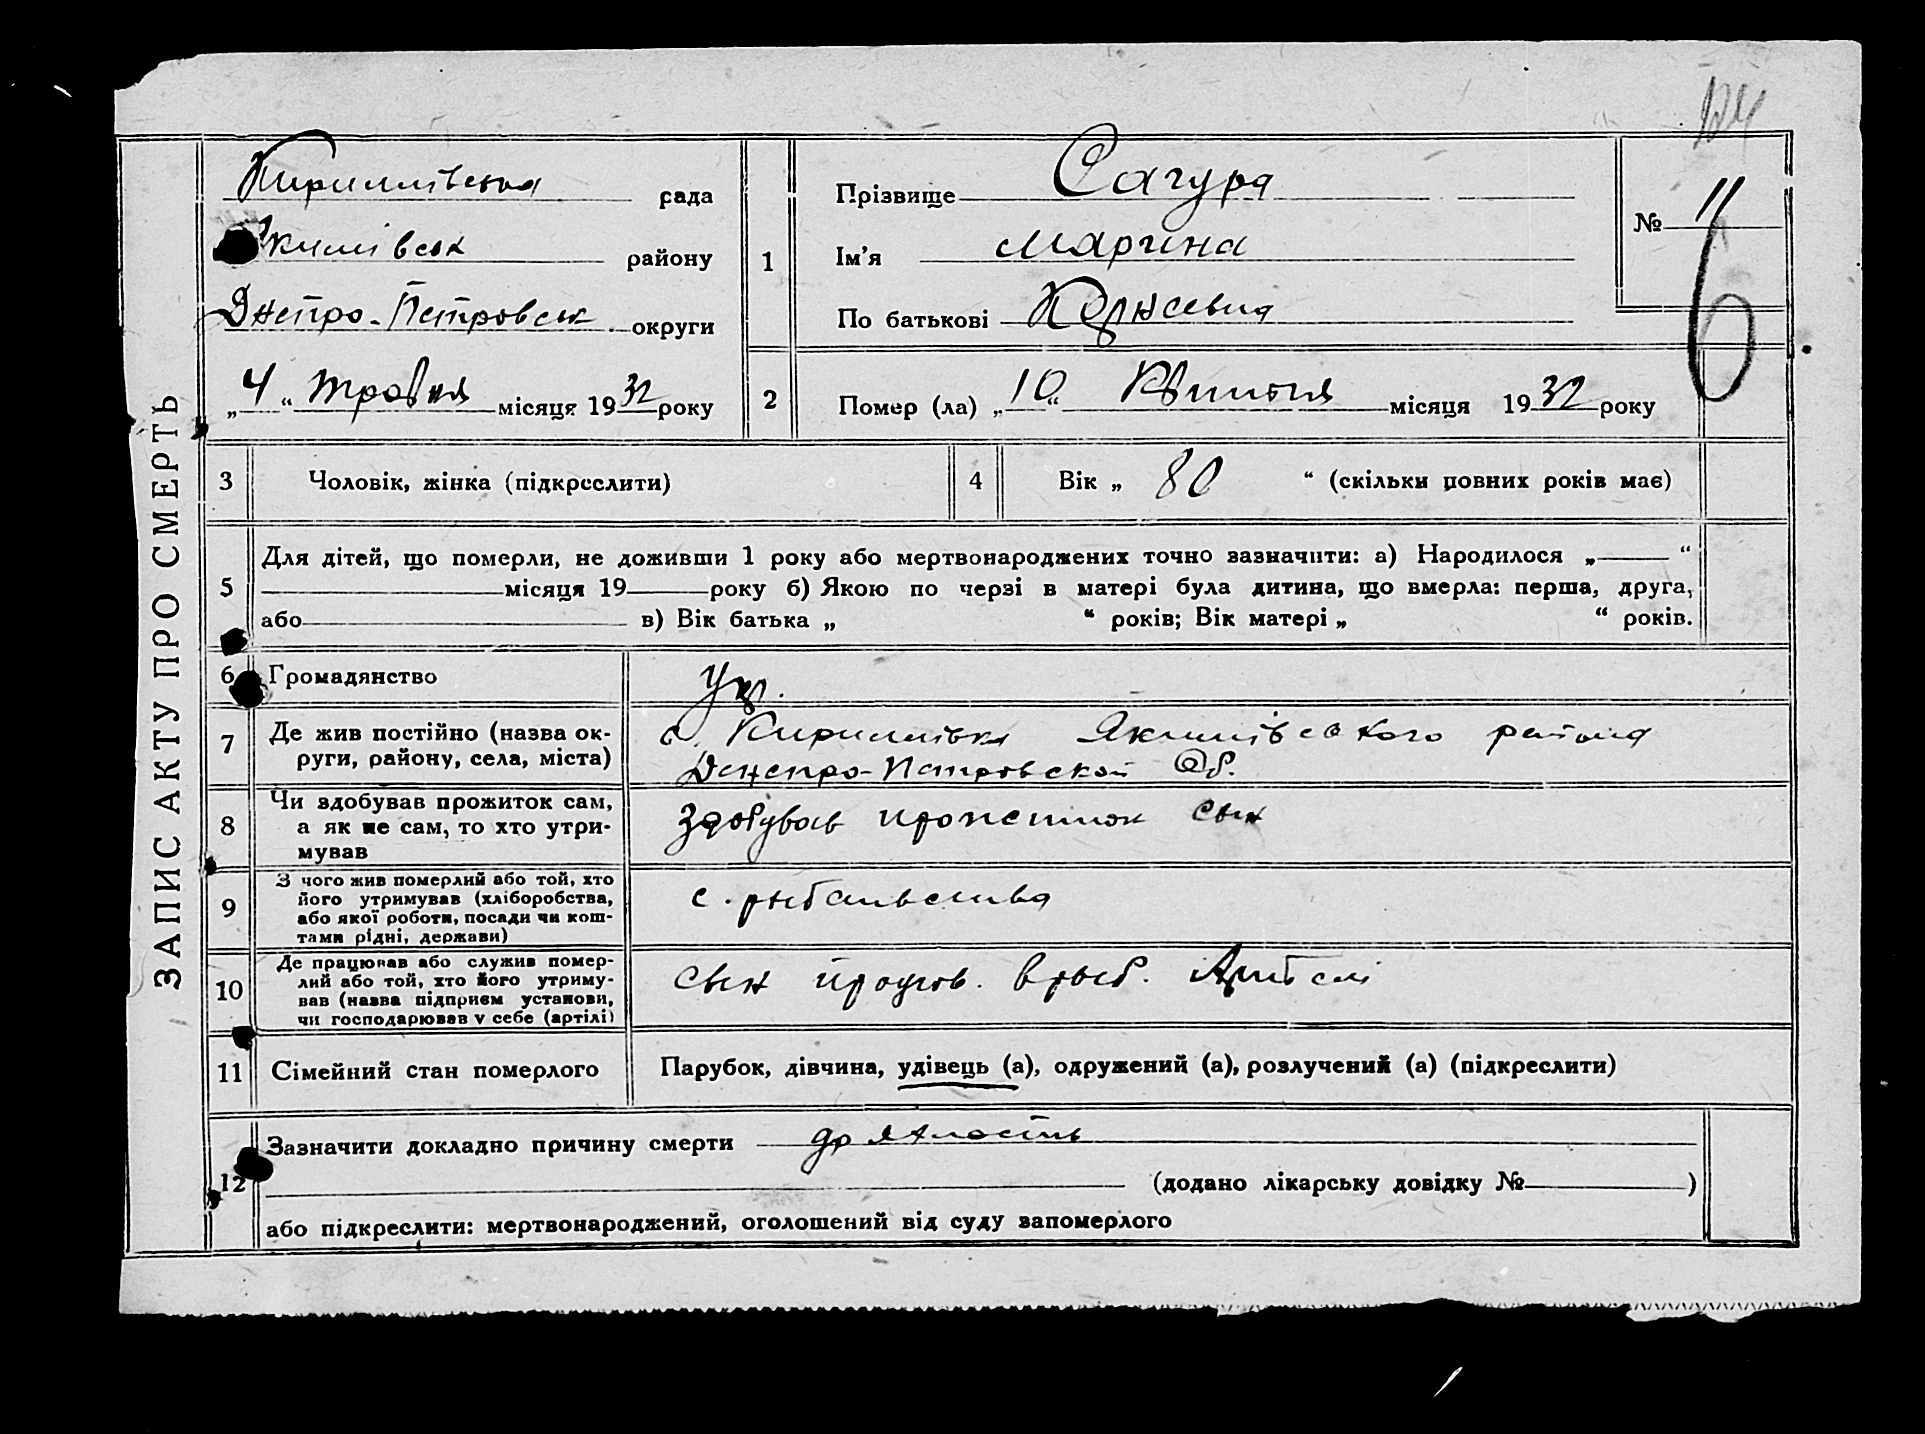 124
ЗАПИС АКТУ ПРО СМЕРТЬ
Кирилливська рада
Якимівськ району
Днепро-Петровськ округи
„4“ травня місяця 1932 року
1
Прізвище Сагура
Ім'я Марина
По батькові
№ 11
6
2
Помер (ла) „10“ Квитня місяця 1932 року
3
Чоловік, жінка (підкреслити)
4
Вік „ 80 “ (скільки повних років має)
5
Для дітей, що померли, не доживши 1 року або мертвонароджених точно зазначити: а) Народилося „ “
місяця 19 року б) Якою по черзі в матері була дитина, що вмерла: перша, друга,
або в) Вік батька „ “ років; Вік матері „ “ років.
6
Громадянство
Укр.
7
Де жив постійно (назва ок-
руги, району, села, міста)
с. Кириллівка Якимівського района
Денепро-Петровской Об.
8
Чи здобував прожиток сам,
а як не сам, то хто утри-
мував
Здобував прожиток сын
9
З чого жив померлий або той, хто
його утримував (хліборобства,
або якої роботи, посади чи кош-
тами рідні, держави)
с. рыбальства
10
Де працював або служив помер-
лий або той, хто його утриму-
вав (назва підприєм установи,
чи господарював у себе (артілі)
сын в рыб. Артелі
11
Сімейний стан померлого
Парубок, дівчина, удівець (а), одружений (а), розлучений (а) (підкреслити)
12
Зазначити докладно причину смерти дряхлость
(додано лікарську довідку № )
або підкреслити: мертвонароджений, оголошений від суду запомерлого